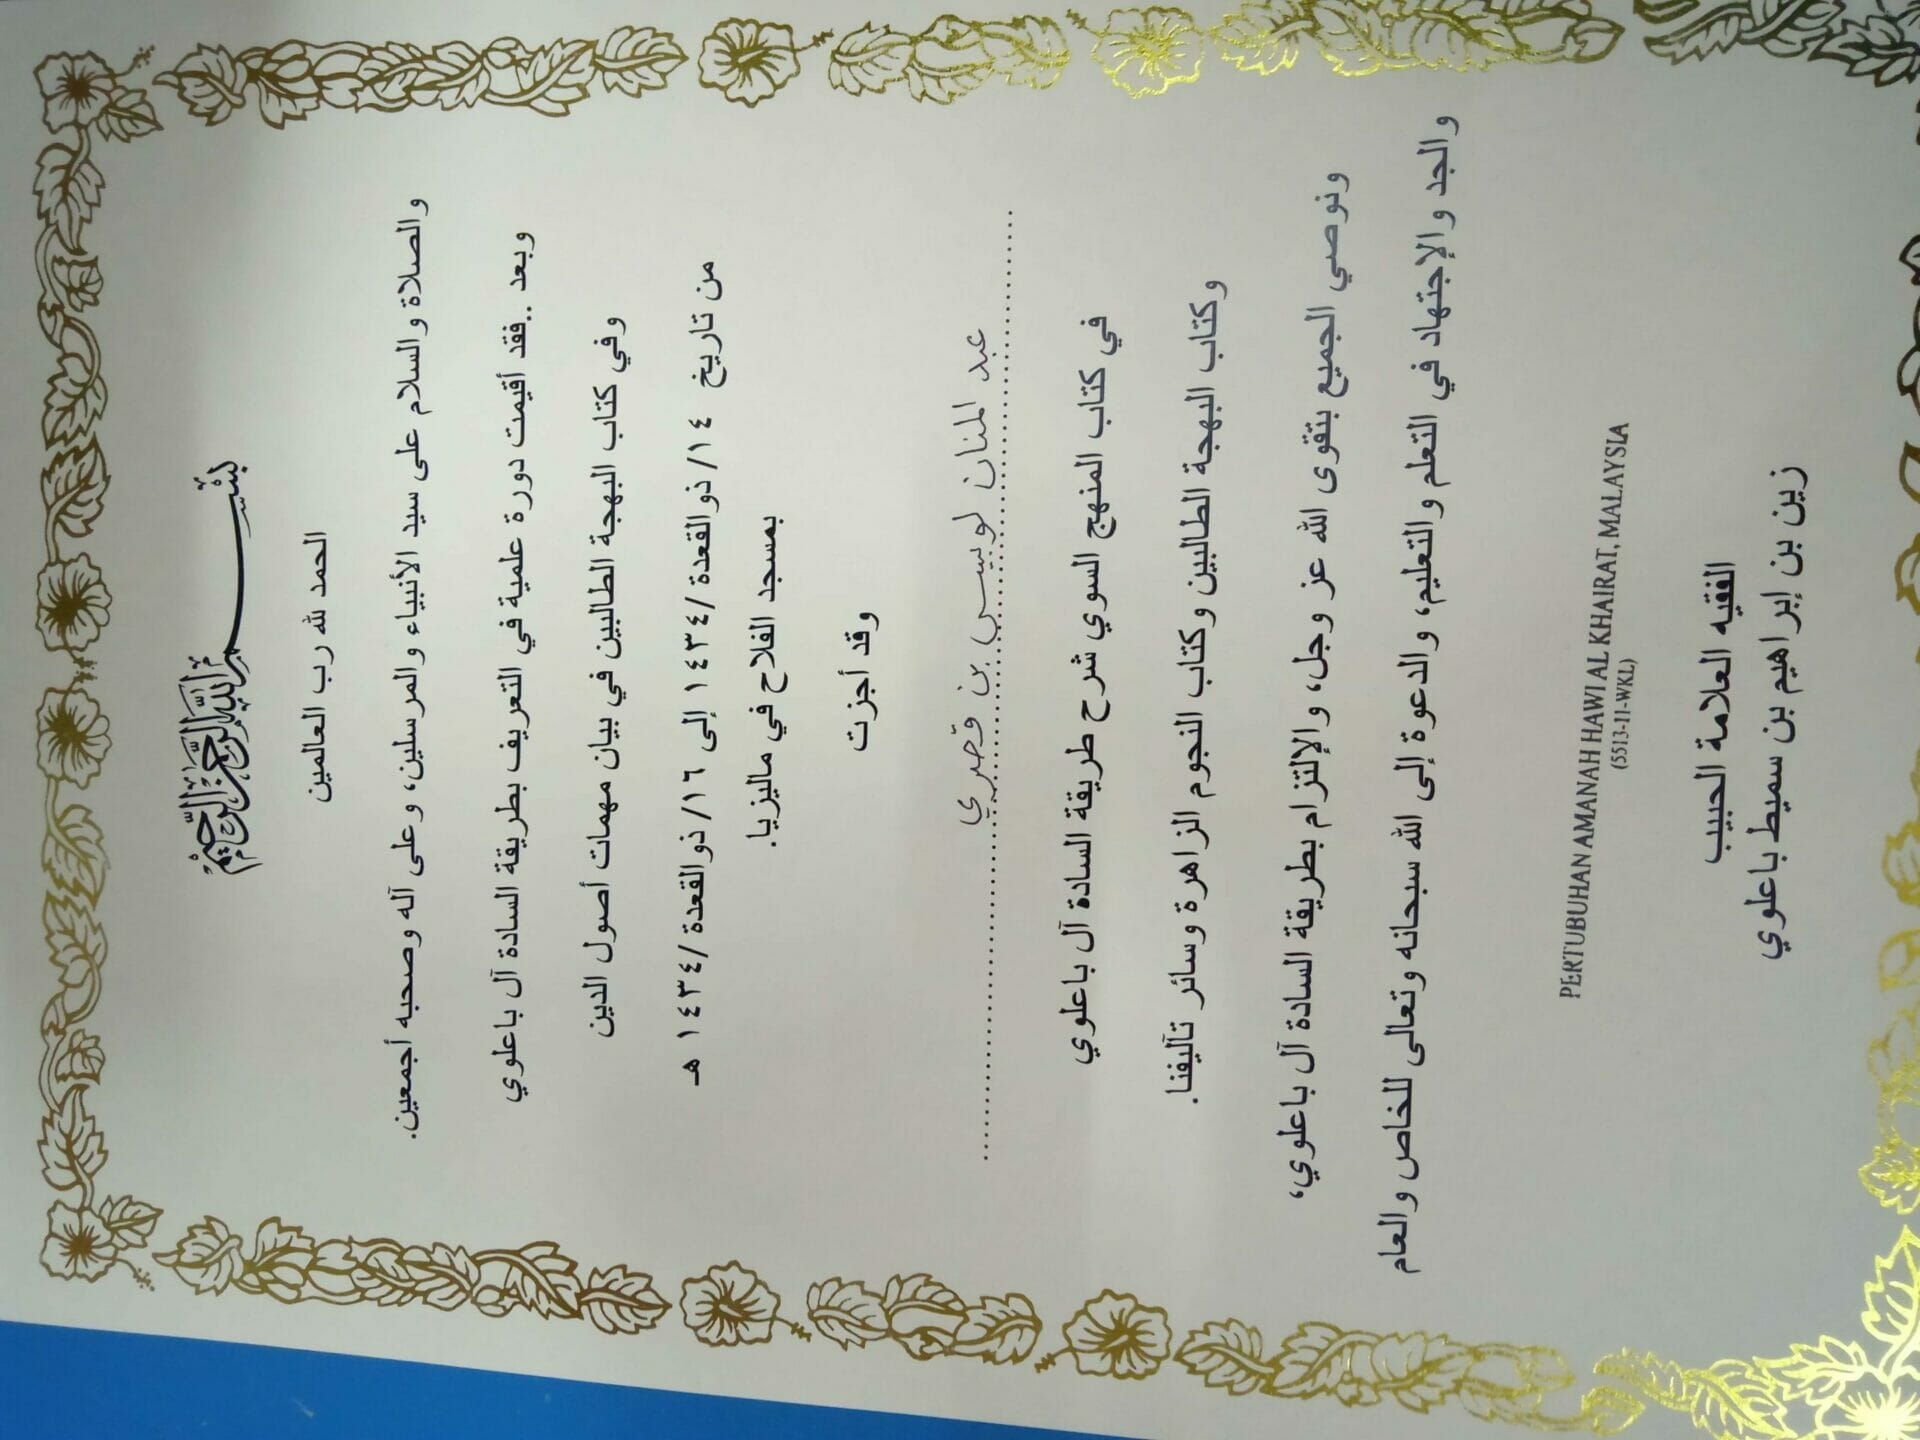 بسم الله الرحمن الرحيم
الحمد لله رب العالمين
والصلاة والسلام على سيد الأنبياء والمرسلين، وعلى آله وصحبه أجمعين.
وبعد ..فقد أقيمت دورة علمية في التعريف بطريقة السادة آل باعلوي
وفي كتاب البهجة الطالبين في بيان مهمات أصول الدين
من تاريخ ١٤/ ذوالقعدة /١٤٣٤ إلى ١٦/ ذوالقعدة /١٤٣٤ هـ
بمسجد الفلاح في ماليزيا.
وقد أجزت
عبد المنان لوبيس بن قصري
في كتاب المنهج السوي شرح طريقة السادة آل باعلوي
وكتاب البهجة الطالبين وكتاب النجوم الزاهرة وسائر تآليفنا.
ونوصي الجميع بتقوى الله عز وجل، والإلتزام بطريقة السادة آل باعلوي،
والجد والإجتهاد في التعلم والتعليم، والدعوة إلى الله سبحانه وتعالى للخاص والعام
PERTUBUHAN AMANAH HAWI AL KHAIRAT, MALAYSIA
(5513-11-WKL)
الفقيه العلامة الحبيب
زين بن إبراهيم بن سميط باعلوي